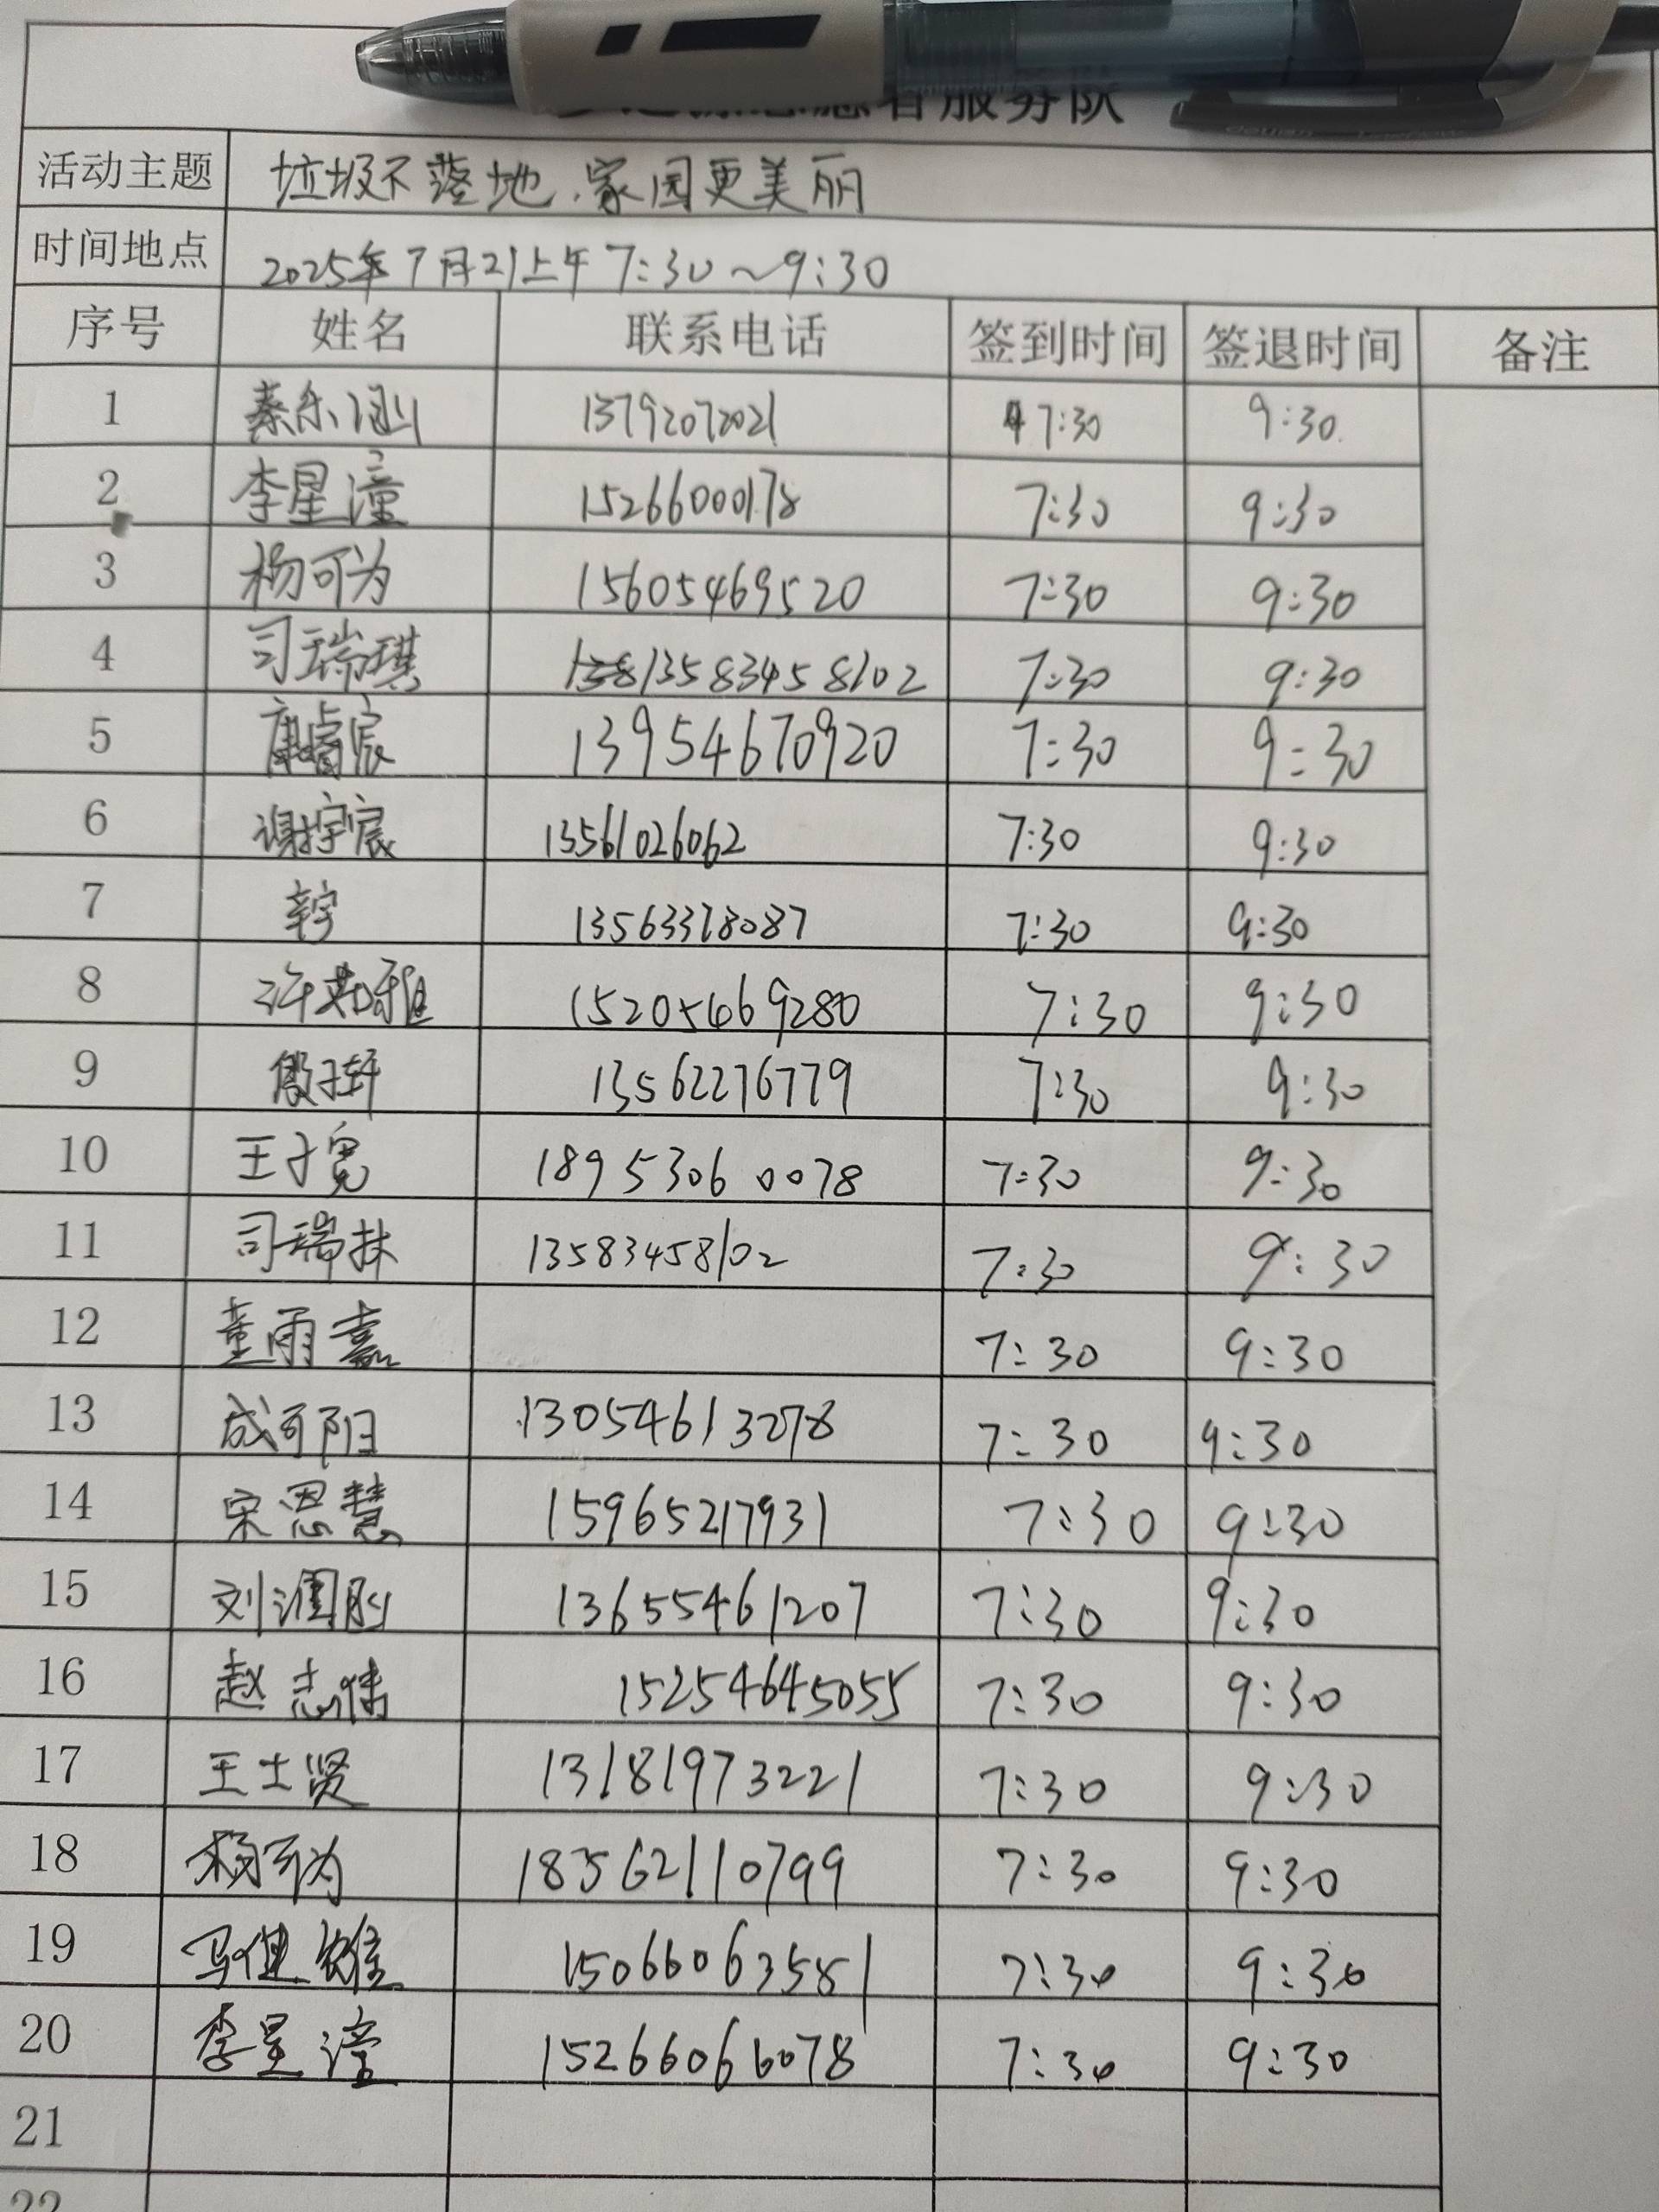 志愿者服务队
活动主题 垃圾不落地.家园更美丽
时间地点 2025年7月21上午7:30~9:30
序号 姓名 联系电话 签到时间 签退时间 备注
1 秦乐涵 13792072021 7:30 9:30
2 李星潼 15266000178 7:30 9:30
3 杨可为 15605469520 7:30 9:30
4 司瑞琪 13583458102 7:30 9:30
5 康睿宸 13954670920 7:30 9:30
6 谢宇宸 13561026062 7:30 9:30
7 辛宇 13563378087 7:30 9:30
8 许菀雅 15205469280 7:30 9:30
9 殷子轩 13562276779 7:30 9:30
10 王子宽 18953060078 7:30 9:30
11 司瑞林 13583458102 7:30 9:30
12 董雨嘉 7:30 9:30
13 成可阳 13054613278 7:30 9:30
14 宋恩慧 15965217931 7:30 9:30
15 刘润 13655461207 7:30 9:30
16 赵志伟 15254645055 7:30 9:30
17 王士贤 13181973221 7:30 9:30
18 杨可为 183562110799 7:30 9:30
19 马健雄 15066063581 7:30 9:30
20 李星潼 15266066078 7:30 9:30
21
22